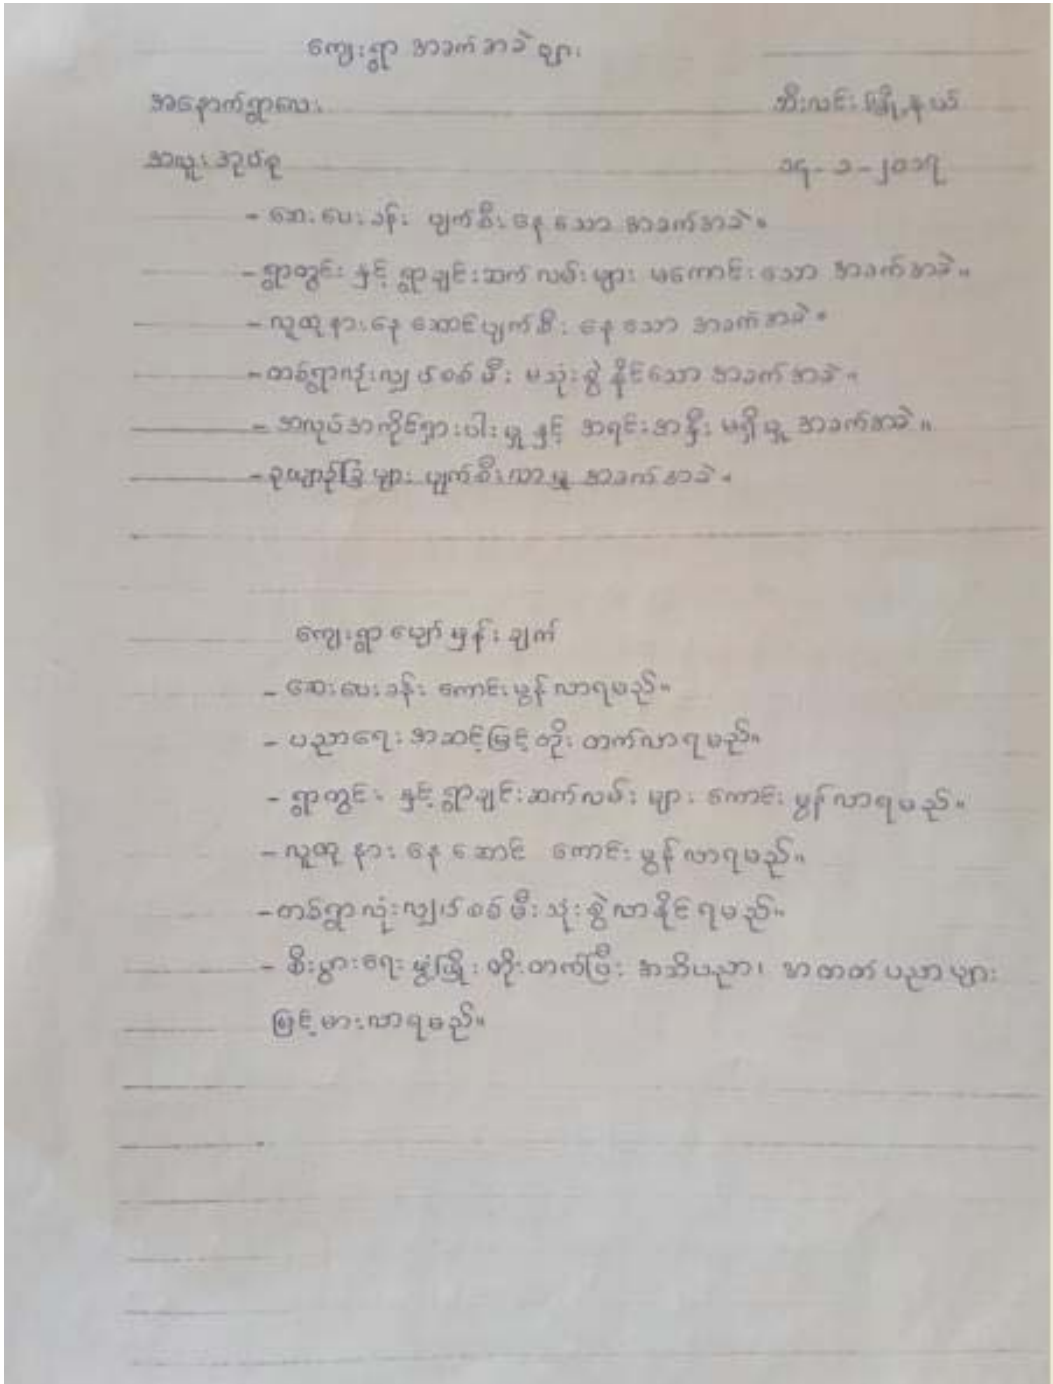 ကျေးရွာ အခက်အခဲ များ
အနောက်ရွာလေး ဘီးလင်း မြို့နယ်
အလူးအုပ်စု ၁၄-၁-၂၀၁၇
- ဆေးပေးခန်း ပျက်စီးနေသော အခက်အခဲ။
- ရွာတွင်း နှင့် ရွာချင်းဆက် လမ်းများ မကောင်းသော အခက်အခဲ။
- လူထုနားနေဆောင်ပျက်စီးနေသော အခက်အခဲ။
- တစ်ရွာလုံးလျှပ်စစ်မီး မသုံးစွဲနိုင်သော အခက်အခဲ။
- အလုပ်အကိုင်ရှားပါးမှု နှင့် အရင်းအနှီး မရှိမှု အခက်အခဲ။
- ဥယျာဉ်ခြံများ ပျက်စီးလာမှု အခက်အခဲ။
ကျေးရွာ မျှော်မှန်းချက်
- ဆေးပေးခန်း ကောင်းမွန်လာရမည်။
- ပညာရေး အဆင့်မြင့်တိုးတက်လာရမည်။
- ရွာတွင်း နှင့် ရွာချင်းဆက်လမ်းများ ကောင်းမွန်လာရမည်။
- လူထုနားနေဆောင် ကောင်းမွန်လာရမည်။
- တစ်ရွာလုံးလျှပ်စစ်မီးသုံးစွဲလာနိုင်ရမည်။
- စီးပွားရေးဖွံ့ဖြိုးတိုးတက်ပြီး အသိပညာ၊ အတတ်ပညာများ
မြင့်မားလာရမည်။